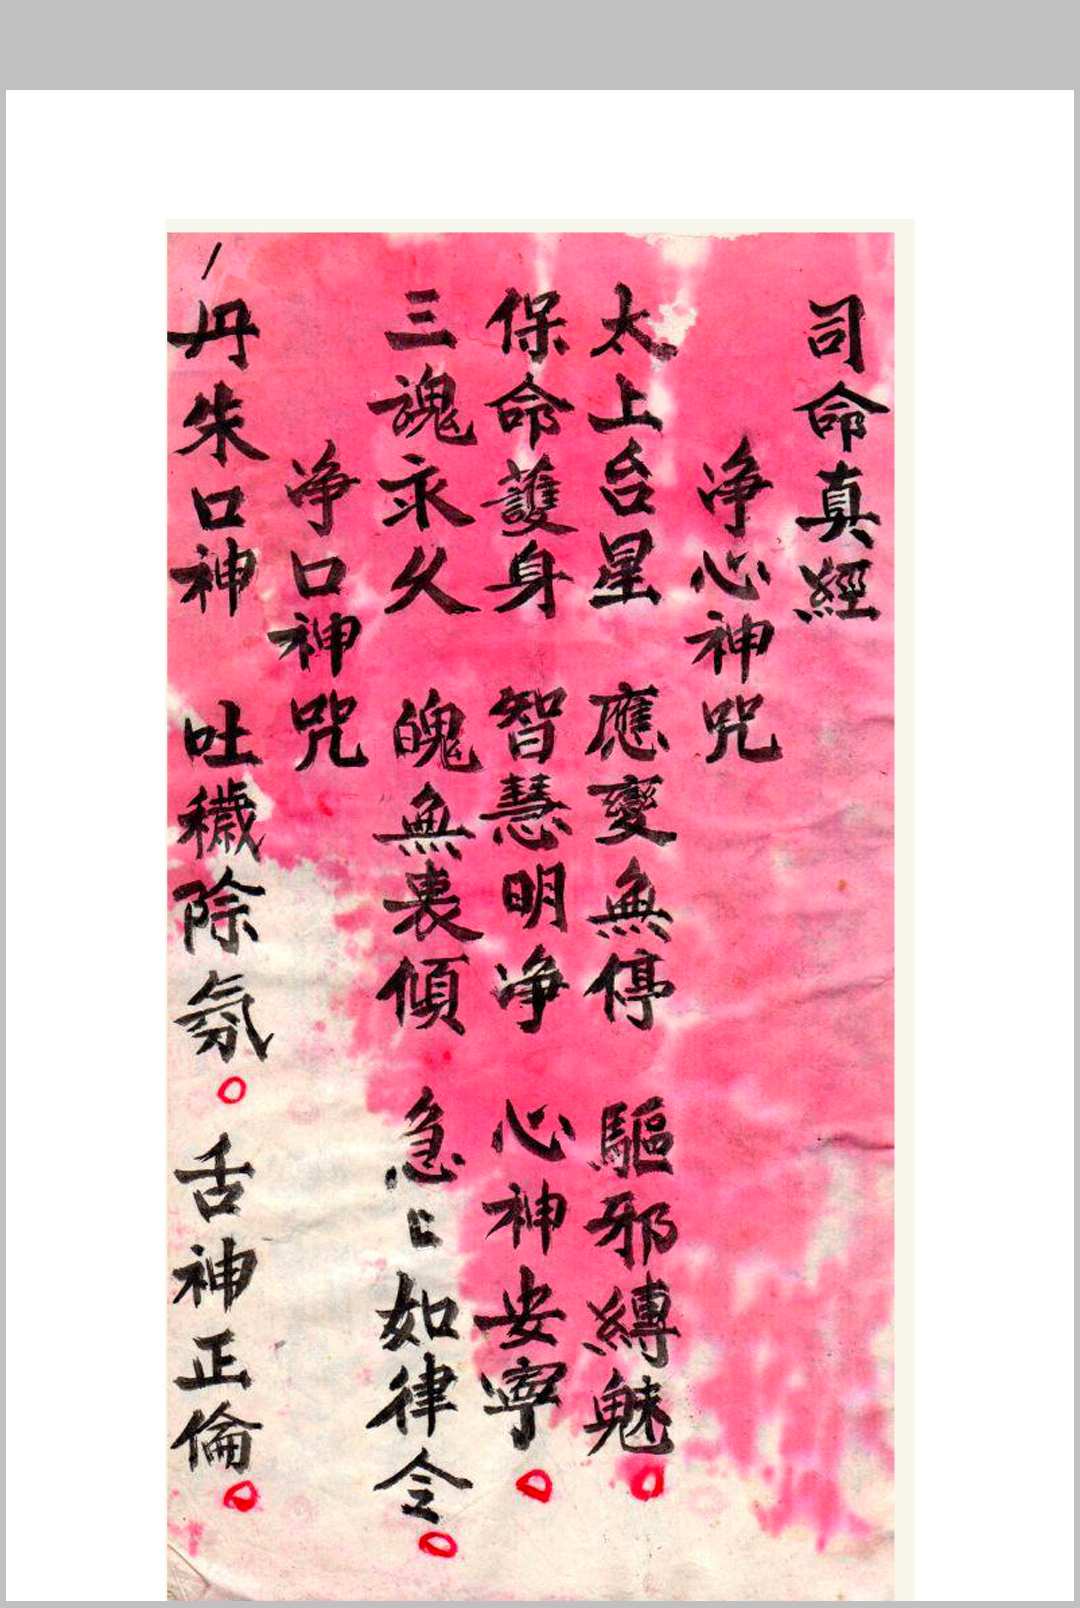 司命真經
净心神咒
太上台星 應變無停 驅邪縛魅。
保命護身 智慧明净 心神安寧。
三魂永久 魄無喪傾 急々如律令。
净口神咒
丹朱口神 吐穢除氛。舌神正倫。